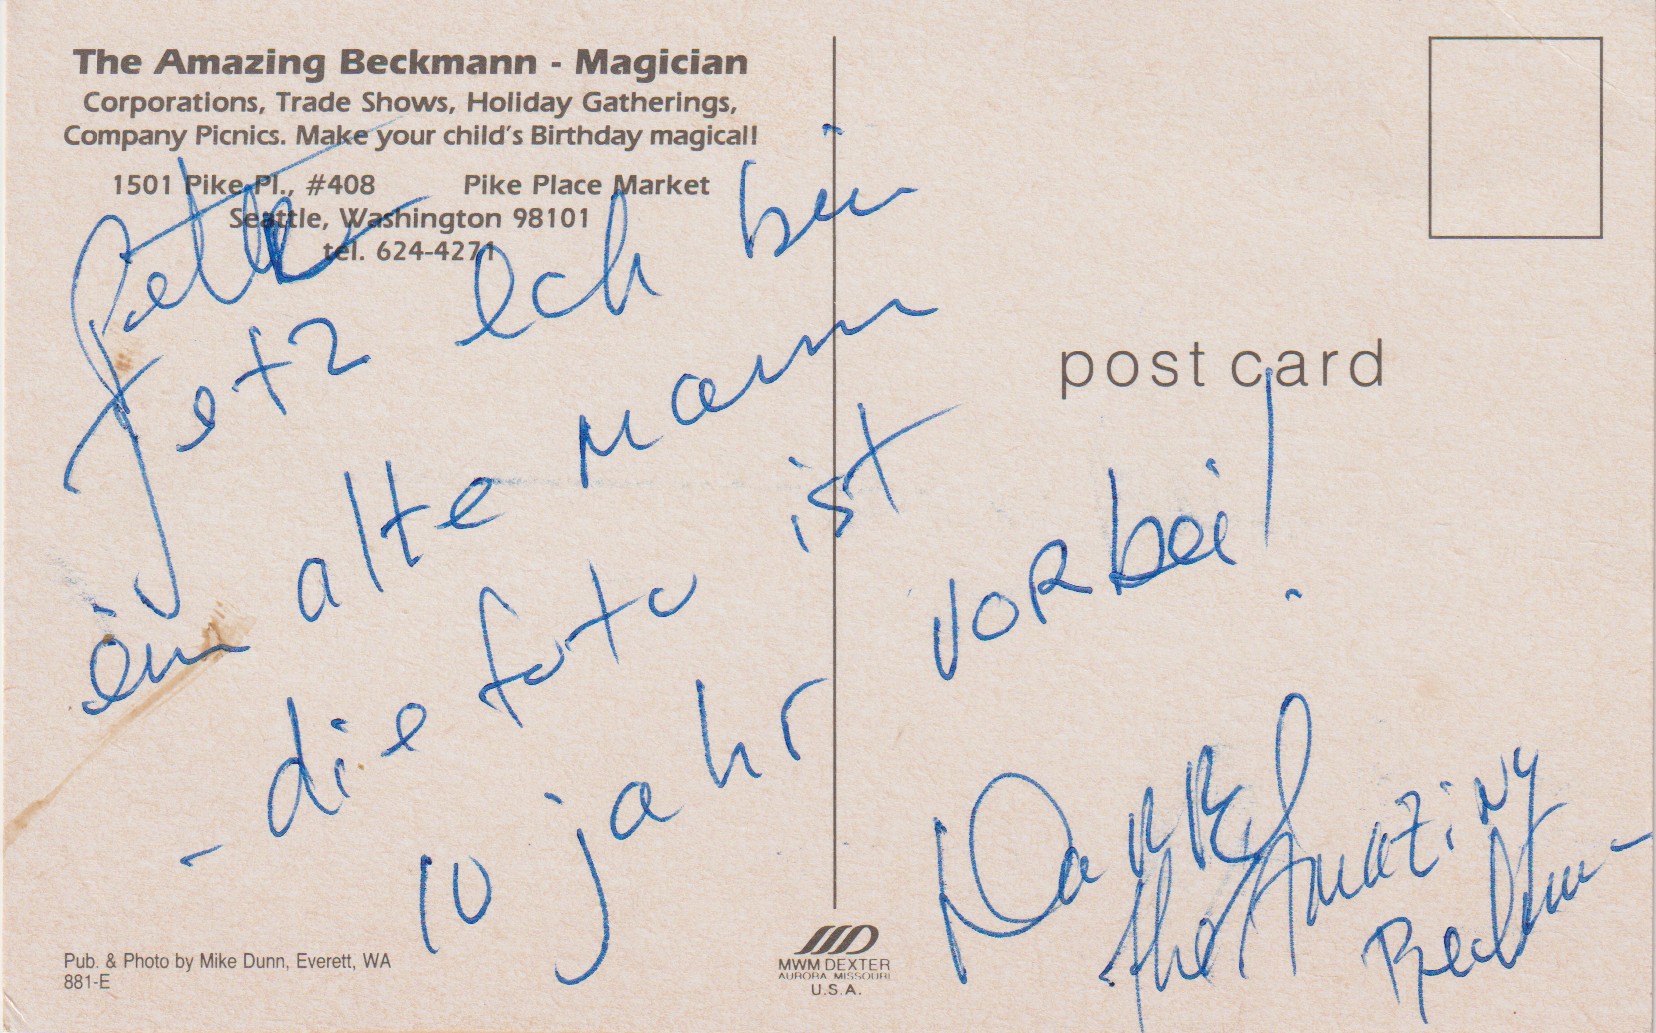 The Amazing Beckmann - Magician
Corporations, Trade Shows, Holiday Gatherings,
Company Picnics. Make your child's Birthday magical!
1501 Pike Pl., #408 Pike Place Market
Seattle, Washington 98101
tel. 624-4271
post card
Peter
Jetz Ich bin
ein alte mann
- die foto ist
10 jahr vorbei!
the Amazing
Beckmann
Pub. & Photo by Mike Dunn, Everett, WA
881-E
MWM DEXTER
AURORA MISSOURI
U.S.A.